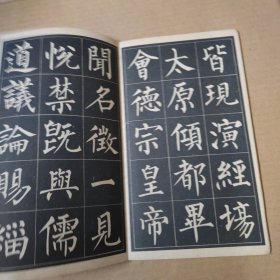 皆現演經場
太原傾都畢
會德宗皇帝
聞名徵一見
悅禁既與儒
道議論賜緇